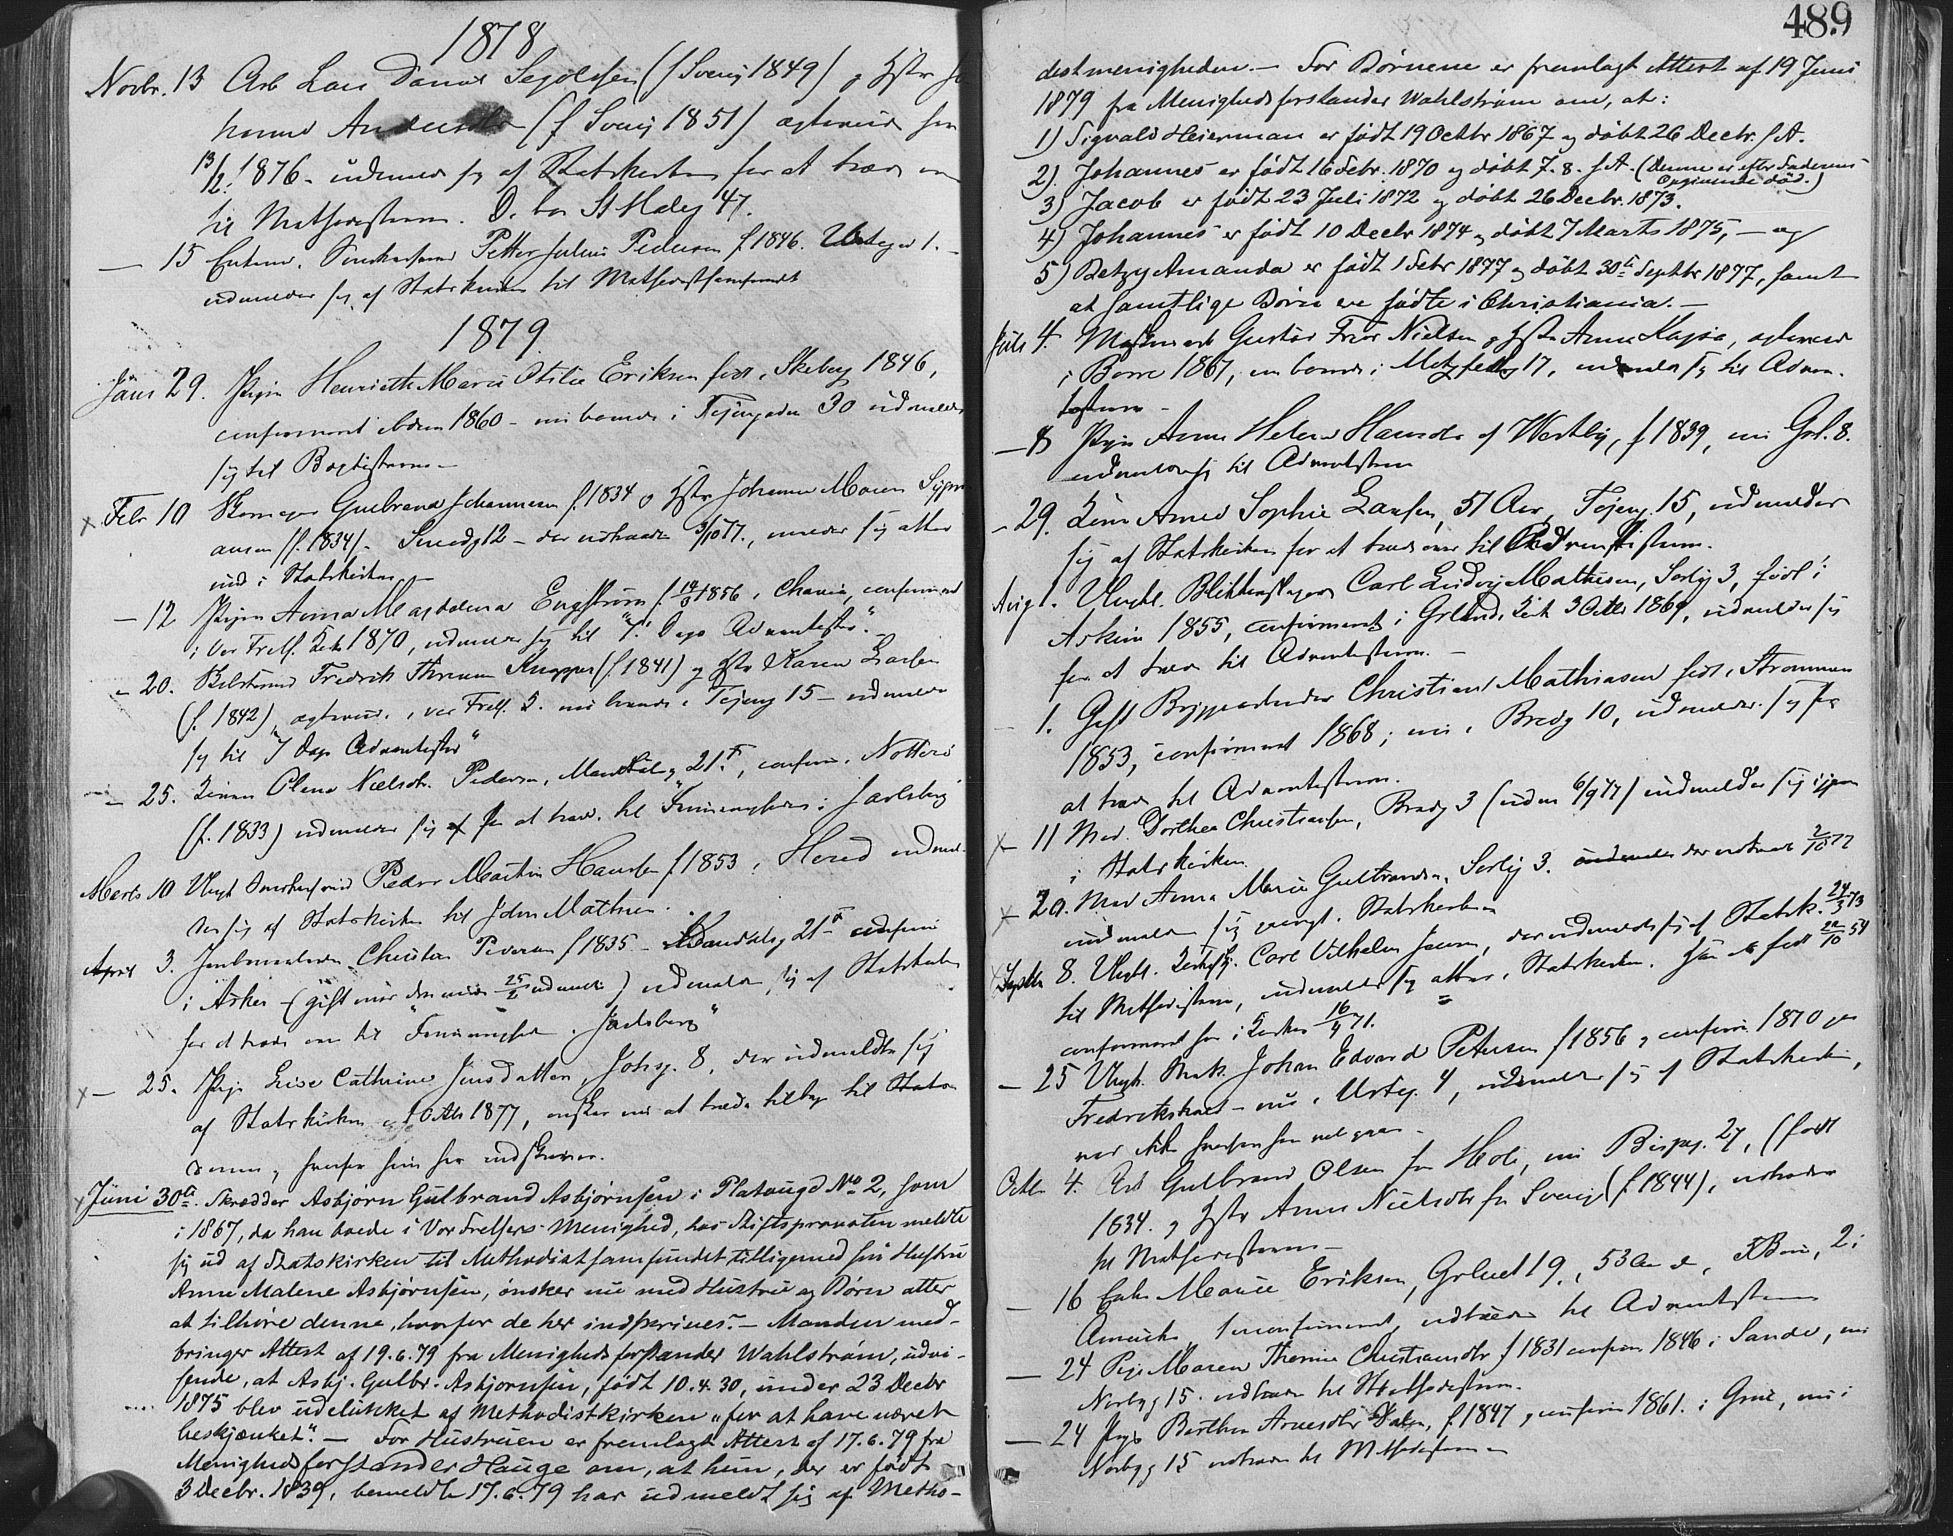 1878
Novbr. 13 Arb Lars Daniel (f Sverig 1849) og Hstr
Andersdtr (f Sverig 1851) ægteviede
13/12 1876 - udmelder sig af Statskirken for at træde over
til Methodisterne. D. bor St Halvg 47.
— 15 Enkem. Petter Julius Pedersen f. 1846. Urtegd 1. —
udmelder sig af Statskirken til Methodistsamfundet
1879.
Janr 29. Pigen Henriette Marie Otilie Eriksen født i Skeberg 1846,
confirmeret ibidem 1860 - nu boende i Tøiengaden 30 udmelder
sig til Baptisterne -
x Febr 10 Skomager Gulbrand Johannesen f. 1834 og Hstr Johanne Maren
ansen (f. 1834). Smedg 12 - der udtraadte 3/10 77., melder sig atter
ind i Statskirken —
— 12 Pigen Anna Magdalena Engstrøm f. 1856 i Chania, confirmeret
i Vor Frels. Kirke 1870, udmelder sig til "7. Dags Adventister". -
- 20. Fredrik Knapper (f. 1841) og Hstr Karen Larsen
(f. 1842), ægteviede i Vor Frels. K. nu boende i Tøieng 15 - udmelder
sig til "7 Dags Adventister"
- 25. Konen Olena Nielsdtr. Pedersen, Mandalsg 21 b, confirm. i Nøtterø
(f. 1833) udmelder sig af for at træde til "Frimenigheden i Jarlsberg"
Marts 10 Ungk Peder Martin Hansen f 1853 i Hered udmel-
der sig af Statskirken til Mathisen.
April 3. Jernbanearbeider Christen Pedersen f 1835 - Mandalsg 21 b confirm
i Asker - (gift med den under 25/2 udmeldte) udmelder sig af Statskirken
for at træde over til "Frimenigheden i Jarlsberg"
x — 25. Pige Lise Cathrine Jensdatter, Johsg. 8, der udmeldte sig
af Statskirken Octbr 1877, ønsker nu at træde tilbage til Statskir
og hvorfor hun her indskrives.
x Juni 30te. Skrædder Asbjørn Gulbrand Asbjørnsen i Platougd No 2, som
i 1867, da han boede i Vor Frelsers Menighed, hos Stiftsprovsten meldte
sig ud af Statskirken til Methodistsamfundet tilligemed sin Hustru
Anne Malene Asbjørnsen, ønsker nu med Hustru og Børn atter
at tilhøre denne, hvorfor de her indskrives. — Manden med-
bringer Attest af 19.6.79 fra Menighedsforstander Wahlstrøm, udvi-
sende, at Asbj. Gulbr. Asbjørnsen, født 10.4.30, under 23 Decbr
1875 blev udelukket af Methodistkirken "for at have været
beskjænket". — For Hustruen er fremlagt Attest af 17.6.79 fra
Menighedsforstander Hauge om, at hun, der er født
3 Decbr. 1839, bemeldte 17.6.79 har udmeldt sig af Metho-
489
distmenigheden. — For Børnene er fremlagt Attest af 19 Juni
1879 fra Menighedsforstander Wahlstrøm om, at:
1) Sigvald Heierman er født 19 Octbr 1867 og døbt 26 Decbr. s.A.
2). Johannes er født 16 Febr. 1870 og døbt 7.8. s.A. (Denne er efter Faderens
Opgivende død.)
3) Jacob er født 23 Juli 1872 og døbt 26 Decbr. 1873.
4) Johannes er født 10 Decbr 1874 og døbt 7 Marts 1875, — og
5) Betzy Amanda er født 1 Febr 1877 og døbt 30te Septbr 1877, samt
at samtlige Børn ere fødte i Christiania. —
Juli 4. Gustav Nielsen og Hstr Anne Kajsa, ægteviede
i Borre 1867, nu boende i Metzfeldtsg 17, udmelder sig til Adven-
tisterne -
— 8 Pigen Anne Helene Hansdtr af Westby, f. 1839, nu Grl. 8.
udmelder sig til Adventisterne
- 29. Kone Anne Sophie Larsen, 51 Aar, Tøieng. 15, udmelder
sig af Statskirken for at træde over til Adventisterne.
Augt 1. Ungk. Blikkenslager Carl Ludvig Mathisen, Sorlig 3, født i
Askim 1855, confirmeret i Grlands Kirk 3 Octbr 1869, udmelder sig
for at træde til Adventisterne. —
- 1. Gift Bryggearbeider Christian Mathiasen født i Strømmen
1853, confirmeret 1868; nu i Bredg 10, udmelder sig for
at træde til Adventisterne.
x — 11 Mad. Dorthea Christiansen, Bradg 3 (uden 6/9 77) indmelder sig igjen
i Statskirken
x — 20. Mad Anna Marie Gultrandsen, Sorlig 3. der udtraadte 2/10 77
indmelder sig Statskirken
x Septbr 8. Ungk. Carl Vilhelm Jensen, der udmeldte sig af Statsk. 24/3 73
til Methodisterne, indmelder sig atter i Statskirken. Han er født 22/10 54
confirmeret her i Kirken 16/4 71.
— 25 Ungk. Johan Edvard Petersen f 1856 og confirm. 1870 paa
Fredrikshald - nu i Urteg. 4, udmelder sig af Statskirken,
ved ikke hvorhen han vil gaa -
Octbr 4. Arb Gulbrand Olsen fra Hole, nu Bispeg. 27, (født
1834. og Hstr Anne Nielsdtr fra Sverig (f. 1844), udtræder
til Methodisterne —
— 16 Enke Marie Eriksen, Grlnd 19, 53 Aar, 3 Børn, 2 i
Amerika, 1 uconfirmeret, udtræder til Adventisterne
— 24 Pige Maren Thorine Christiansdtr f 1831 confirm 1846 i Sande, nu
Norbyg 15. udtræder til Methodisterne.
— 24 Pige Berthea Arnesdtr Dalen, f. 1847, confirm 1861. i Grue, nu i
Norbyg 15 udtræder til Methodisterne -